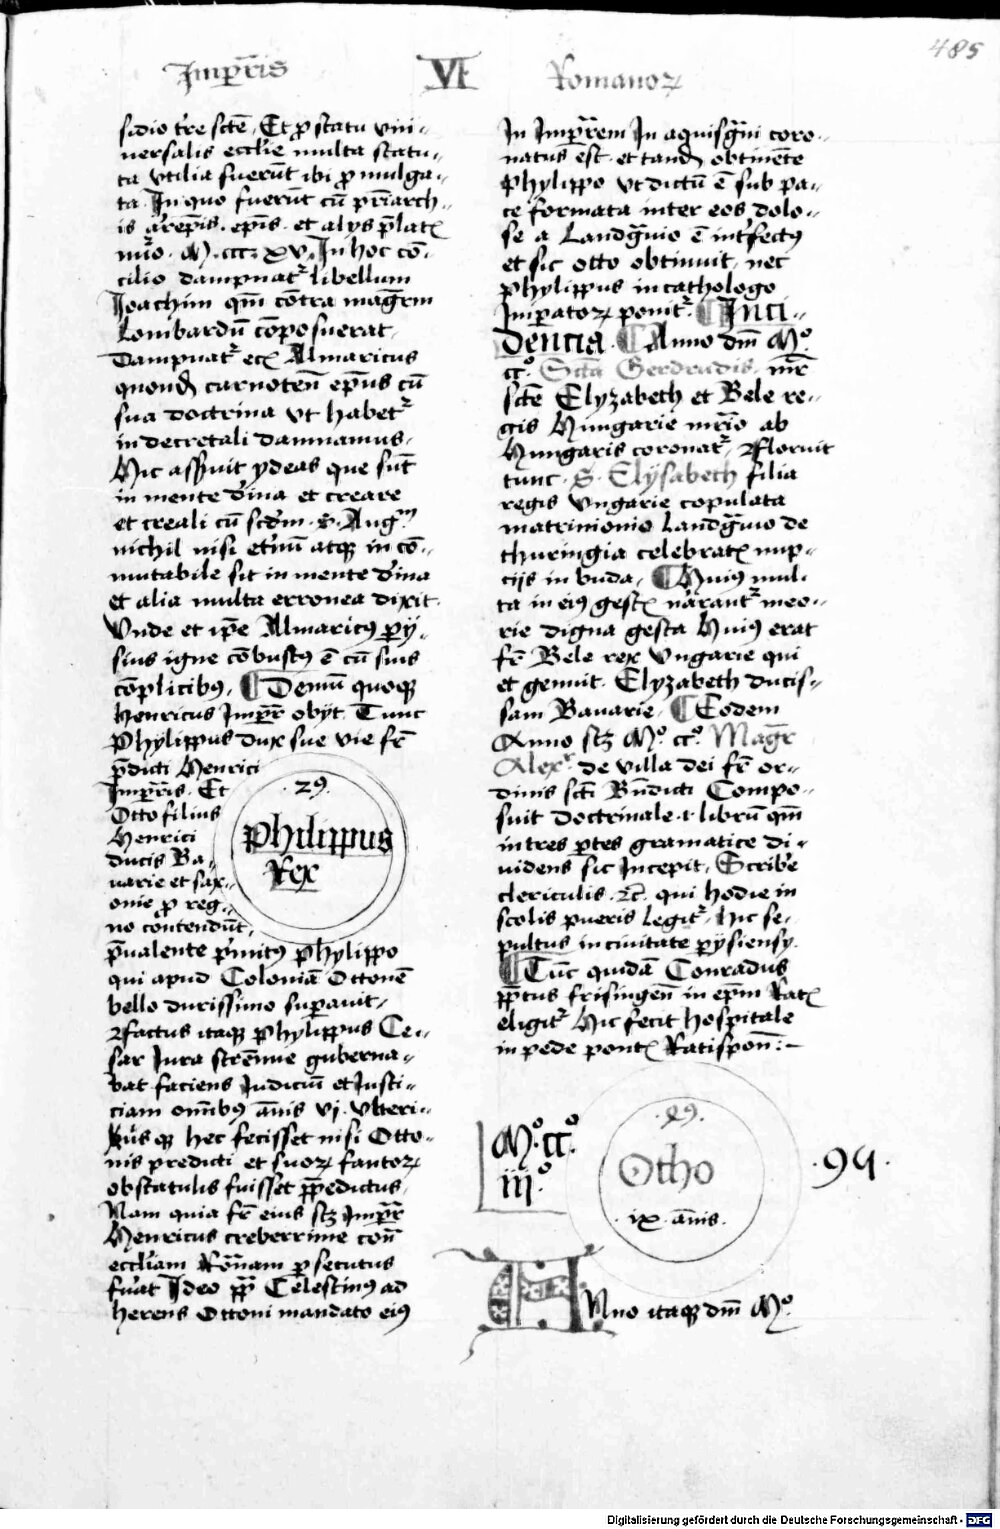 485
Imp̄ris VI Romanoꝝ
sidio t're sctē, Et ꝓ statu vni-
uersalis eccl'ie multa statu-
ta vtilia fuerūt ibi ꝓmulga-
ta. In quo fuerūt cū pr̄iarch-
is ar̄ep̄is. ep̄is. et alys p̄lat
nūo. M. ccc. xv. In hoc cō-
cilio dampnat᷑ libellum
Joachim qm̄ cōtra magr̄m
Lombardū cōposuerat.
Dampnat᷑ ec̄ Almaricus
quondā carnoteñ ep̄us cū
sua doctrina vt habet᷑
in decretali damnamus.
Hic asseruit ydeas que sūt
in mente di'na et creare
et creali cū scd'm. S. Aug.
nichil nisi et'nū atqꝫ in cō-
mutabile sit in mente di'na
et alia multa erronea dixit.
Vnde et ip̄e Almaricꝰ pary-
sius igne cōbustꝰ ē cū suis
cōplicibꝰ. Demū quoqꝫ
Henricus Imp̄r obijt. Tunc
Phylippus dux sue vie fr̄
p̄dicti Henrici
Imp̄ris. Et
Otto filius
Henrici
ducis Ba-
uarie et sax-
onie ꝓ reg-
no cōtendūt,
.29.
Philippus
Rex
p̄ualente p'mitꝰ Phylippo
qui apud Coloniā Ottonē
bello durissimo suꝑauit,
Factus itaqꝫ Phylippus Ce-
sar Jura strēnue guberna-
bat faciens Judiciū et Justi-
ciam omībꝰ ānis vj. Vlteri-
us qꝫ hec fecisset nisi Otto-
nis predicti et suoꝝ fautoꝝ
obstaculis fuisset p̄peditus.
Nam quia fr̄ eius sꝫ Imp̄r
Henricus creberrime cont̄
eccl'iam Ro'nam ꝑsecutus
fu'at Ideo pp̄ Celestinꝰ ad
herens Ottoni mandato eiꝰ
In Imp̄rem In aquisgr̄ni coro-
natus est. et tandē obtinēte
Phylippo vt dictū ē sub pa-
ce formata inter eos dolo-
se a Landgr̄uio ē int'fectꝰ
et sic otto obtinuit, nec
phylippus in cathologo
Imperatoꝝ ponit᷑. Inci-
dencia. Anno dm̄ Mº
ccº. Sctā Gerdrudis. mr̄
sctē Elyzabeth et Bele re-
gis Hungarie mr̄io ab
Hungaris coronat᷑, Floruit
tunc. S. Elysabeth filia
regis Vngarie copulata
matrimonio Landgr̄uio de
thuringia celebrat nup-
cijs in buda, Huiꝰ mul-
ta in eiꝰ gest narant᷑ meo-
rie digna gesta Huiꝰ erat
fr̄ Bele rex Vngarie qui
et genuit. Elyzabeth ducis-
sam Bauarie. Eodem
Anno sꝫ Mº. ccº. Magr̄
Alexr. de villa dei fr̄ or-
dinis scti Bn̄dicti Compo-
suit doctrinale. librū qm̄
in tres ꝑtes gramatice di-
uidens sic Incepit, Scribe
clericulis. zc̄. qui hodie in
scolis pueris legit᷑, hic se-
pultus in ciuitate parysiensy.
Tūc quidā Conradus
pp̄tus frisingeñ in ep̄m Rat
eligit᷑ Hic fecit hospitale
in pede pont Ratispoñ:-
Mº. ccº.
iijº.
Otho
.ix. ānis.
Anno itaqꝫ dm̄ Mº.
Digitalisierung gefördert durch die Deutsche Forschungsgemeinschaft - DFG